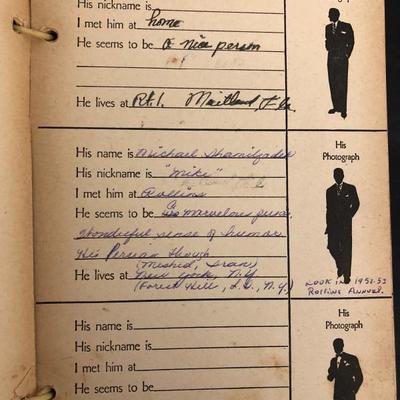 His nickname is
I met him at home
He seems to be a nice person
He lives at Rt. 1. Maitland, Fla
His
Photograph
His name is Michael
His nickname is "Mike"
I met him at Rollins
He seems to be a marvelous person
Wonderful sense of humor
His Persian though
(Meshid, Iran)
He lives at New York, N.Y.
(Forest Hill, L.I., N.Y.)
LOOK IN 1952-53
Rollins Annual.
His name is
His nickname is
I met him at
He seems to be
His
Photograph